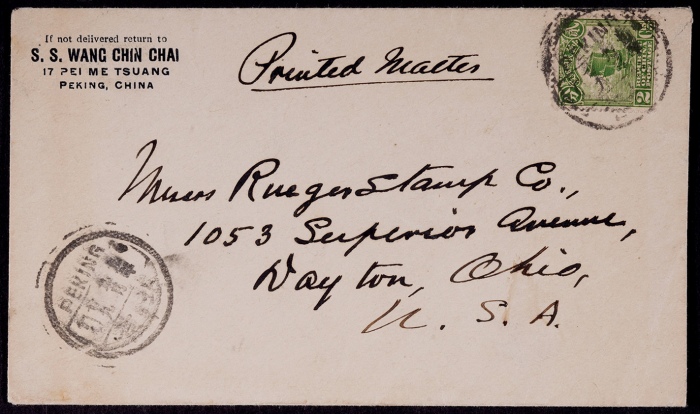 If not delivered return to
S. S. WANG CHIN CHAI
17 PEI ME TSUANG
PEKING, CHINA
Printed Matter
Messrs Rueger Stamp Co.,
1053 Superior Avenue,
Dayton, Ohio,
U. S. A.
PEKING
2